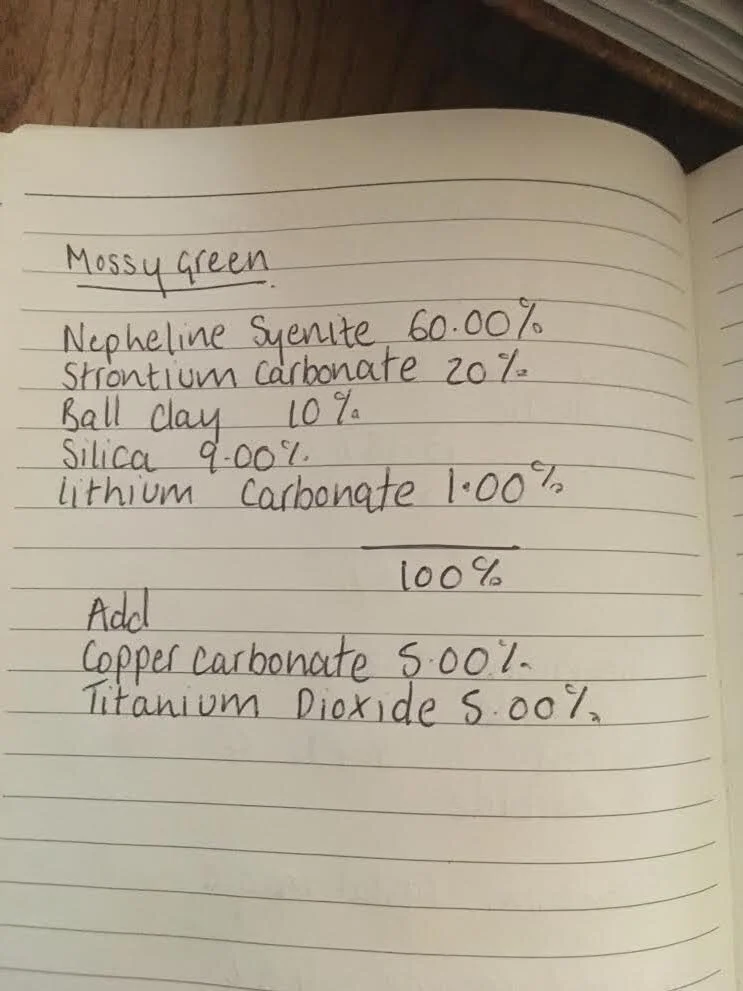 Mossy Green
Nepheline Syenite 60.00%
Strontium carbonate 20%
Ball clay 10%
Silica 9.00%
lithium Carbonate 1.00%
100%
Add
Copper carbonate 5.00%
Titanium Dioxide 5.00%